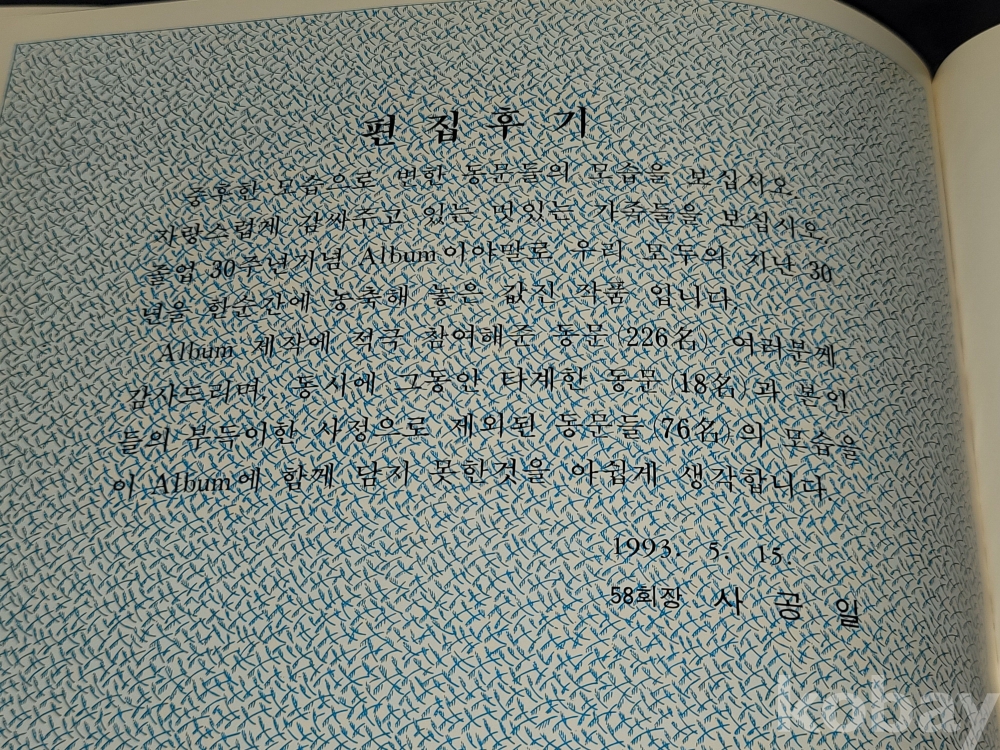 편집후기
중후한 모습으로 변한 동문들의 모습을 보십시오.
자랑스럽게 감싸주고 있는 멋있는 가족들을 보십시오.
졸업 30주년기념 Album이야말로 우리 모두의 지난 30
년을 한순간에 농축해 놓은 값진 작품 입니다.
Album 제작에 적극 참여해준 동문(226名) 여러분께
감사드리며, 동시에 그동안 타계한 동문(18名)과 본인
들의 부득이한 사정으로 제외된 동문들(76名)의 모습을
이 Album에 함께 담지 못한것을 아쉽게 생각합니다.
1993. 5. 15.
58회장 사 공 일
kobay